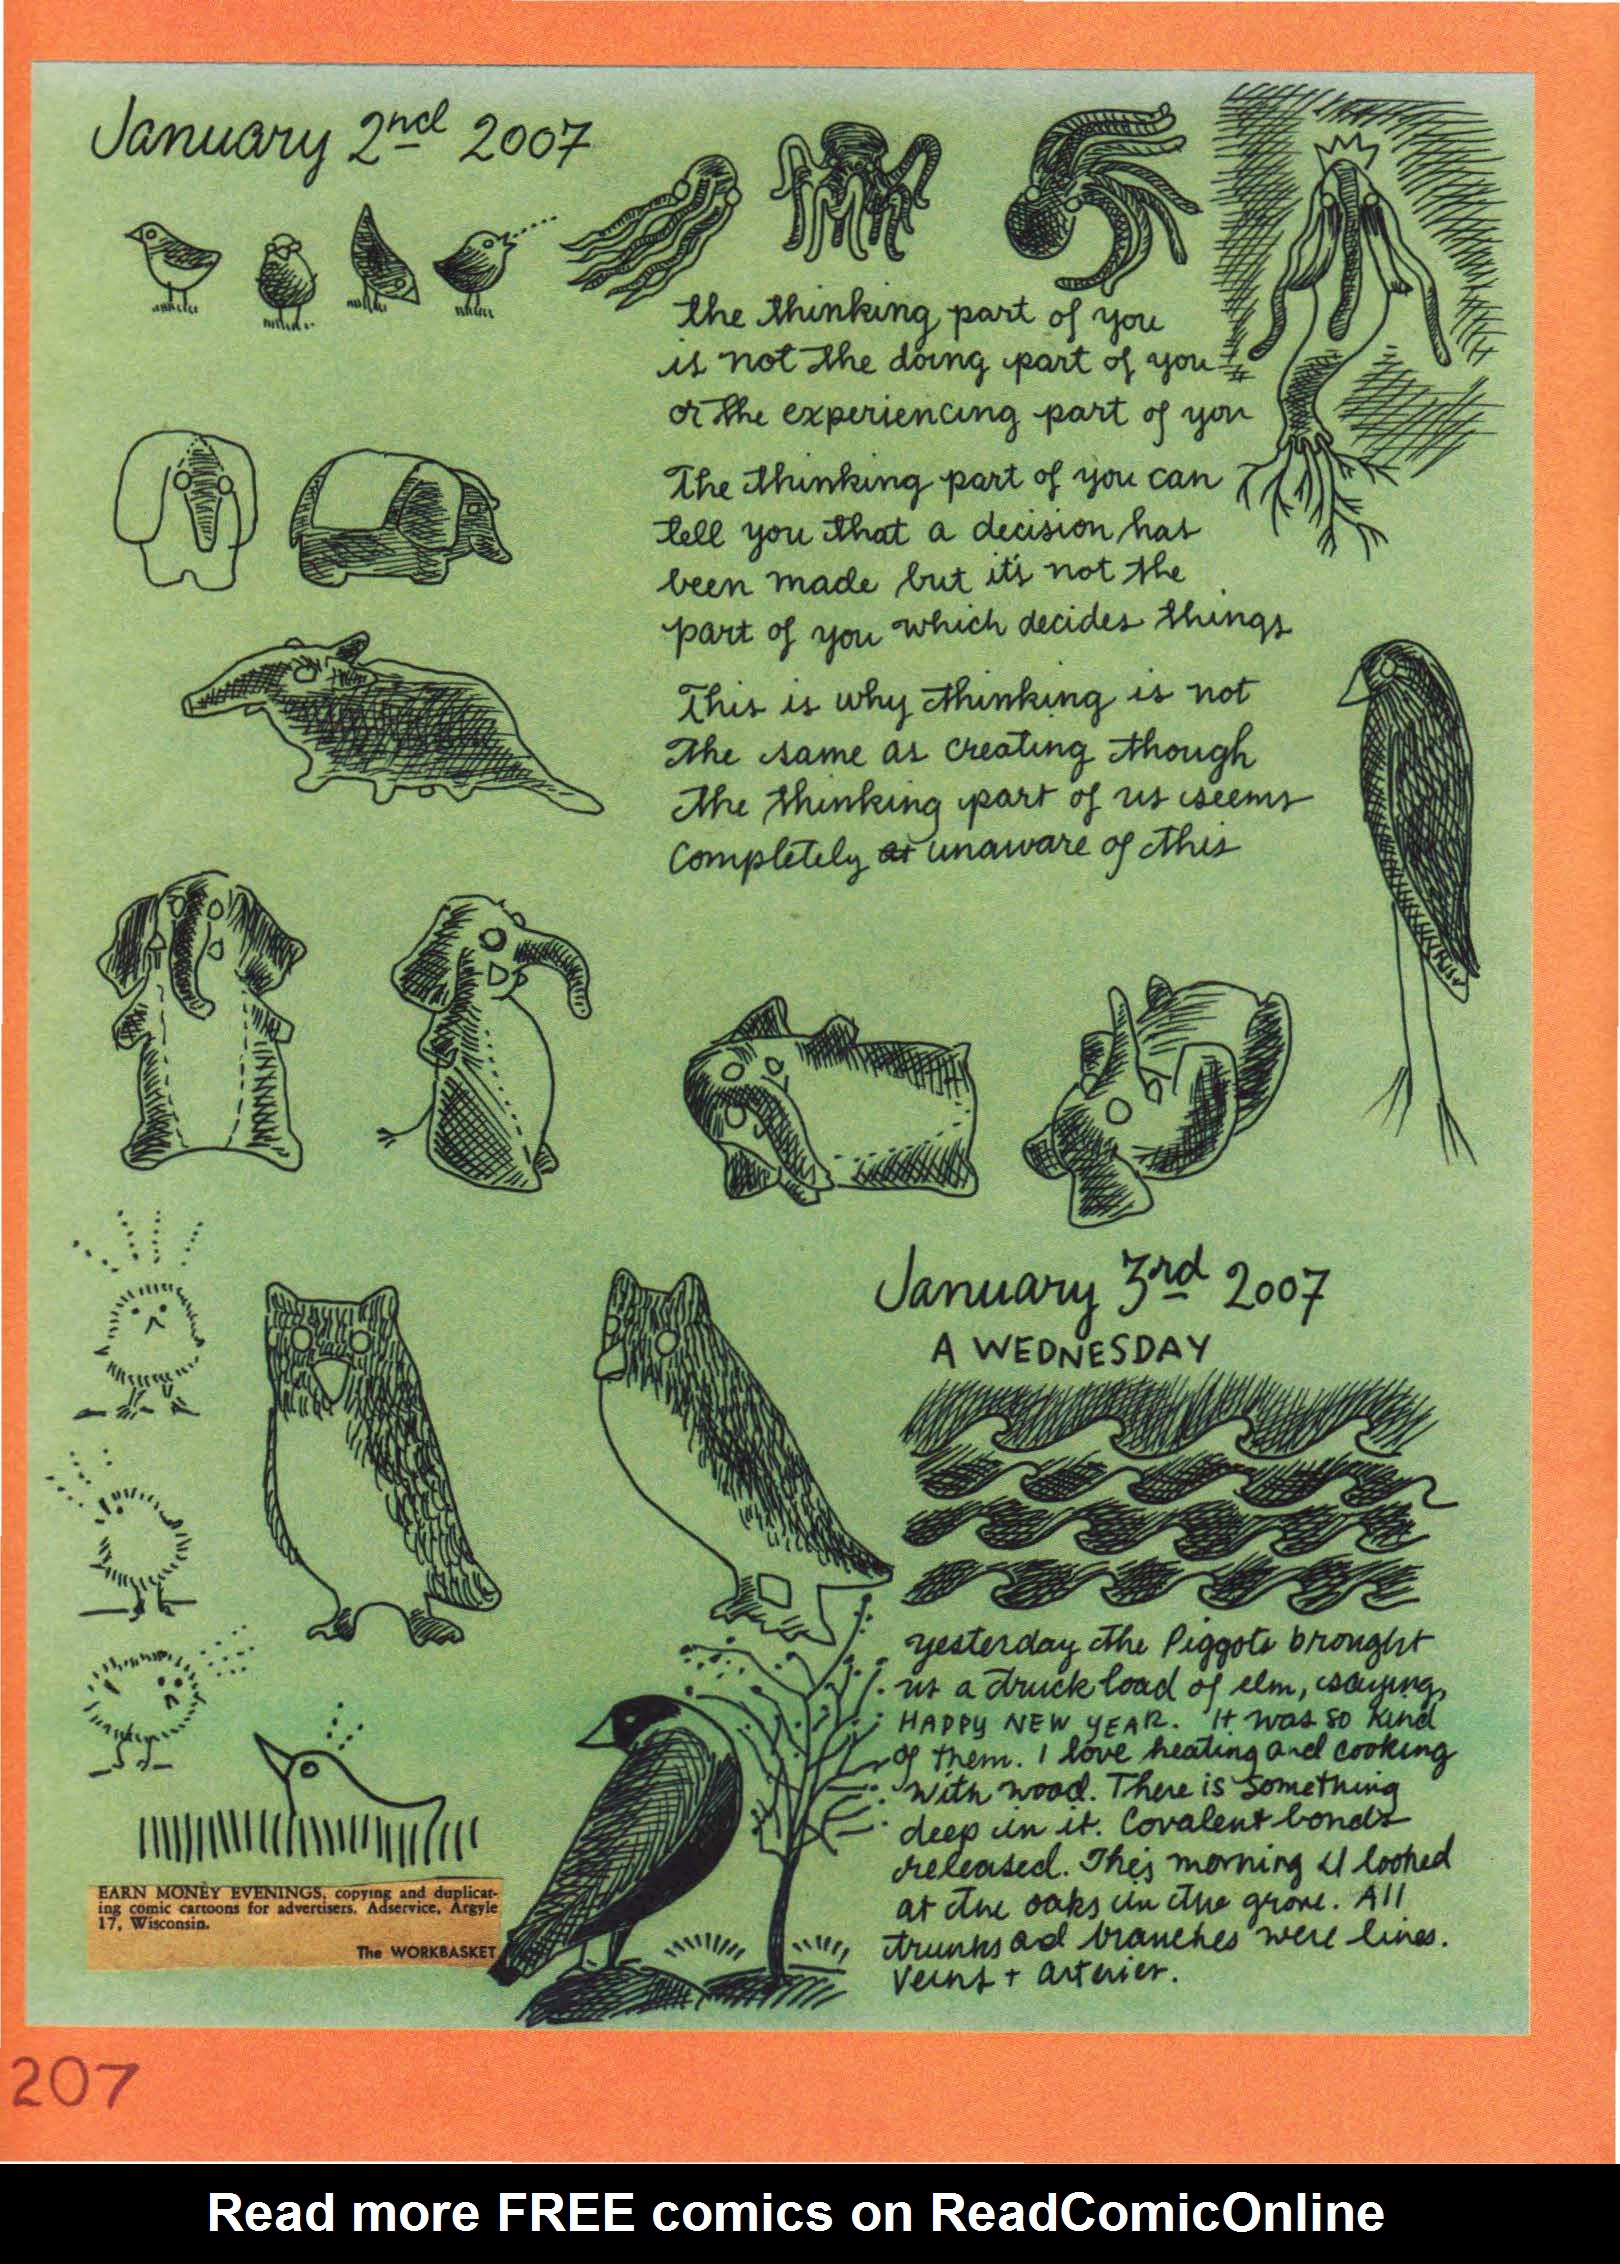 January 2nd 2007
the thinking part of you
is not the doing part of you
or the experiencing part of you
The thinking part of you can
tell you that a decision has
been made but it's not the
part of you which decides things
This is why thinking is not
the same as creating though
the thinking part of us seems
completely at unaware of this
January 3rd 2007
A WEDNESDAY
yesterday the Piggots brought
us a truck load of elm, saying,
HAPPY NEW YEAR. It was so kind
of them. I love heating and cooking
with wood. There is something
deep in it. Covalent bonds
released. This morning I looked
at the oaks in the grove. All
trunks ad branches were lines.
Veins + arteries.
EARN MONEY EVENINGS, copying and duplicat-
ing comic cartoons for advertisers. Adservice, Argyle
17, Wisconsin.
The WORKBASKET
207
Read more FREE comics on ReadComicOnline